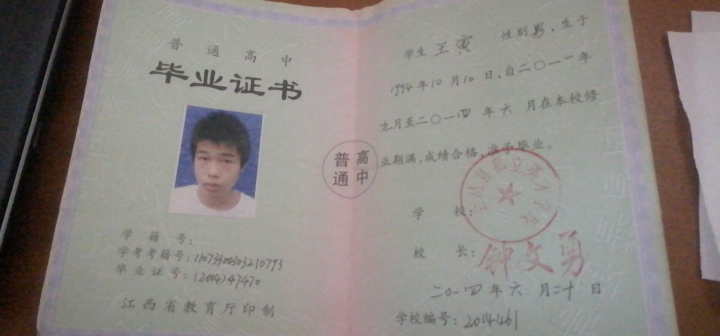 普通高中
毕业证书
学籍号:
学考考籍号:
毕业证号:
江西省教育厅印制
普通高中
学生 王寅 性别 男,生于
1994年10月10日,自二〇一一年
九月至二〇一四年六月在本校修
业期满,成绩合格,准予毕业。
学校:
校长:钟文勇
二〇一四年六月二十日
学校编号:2014461